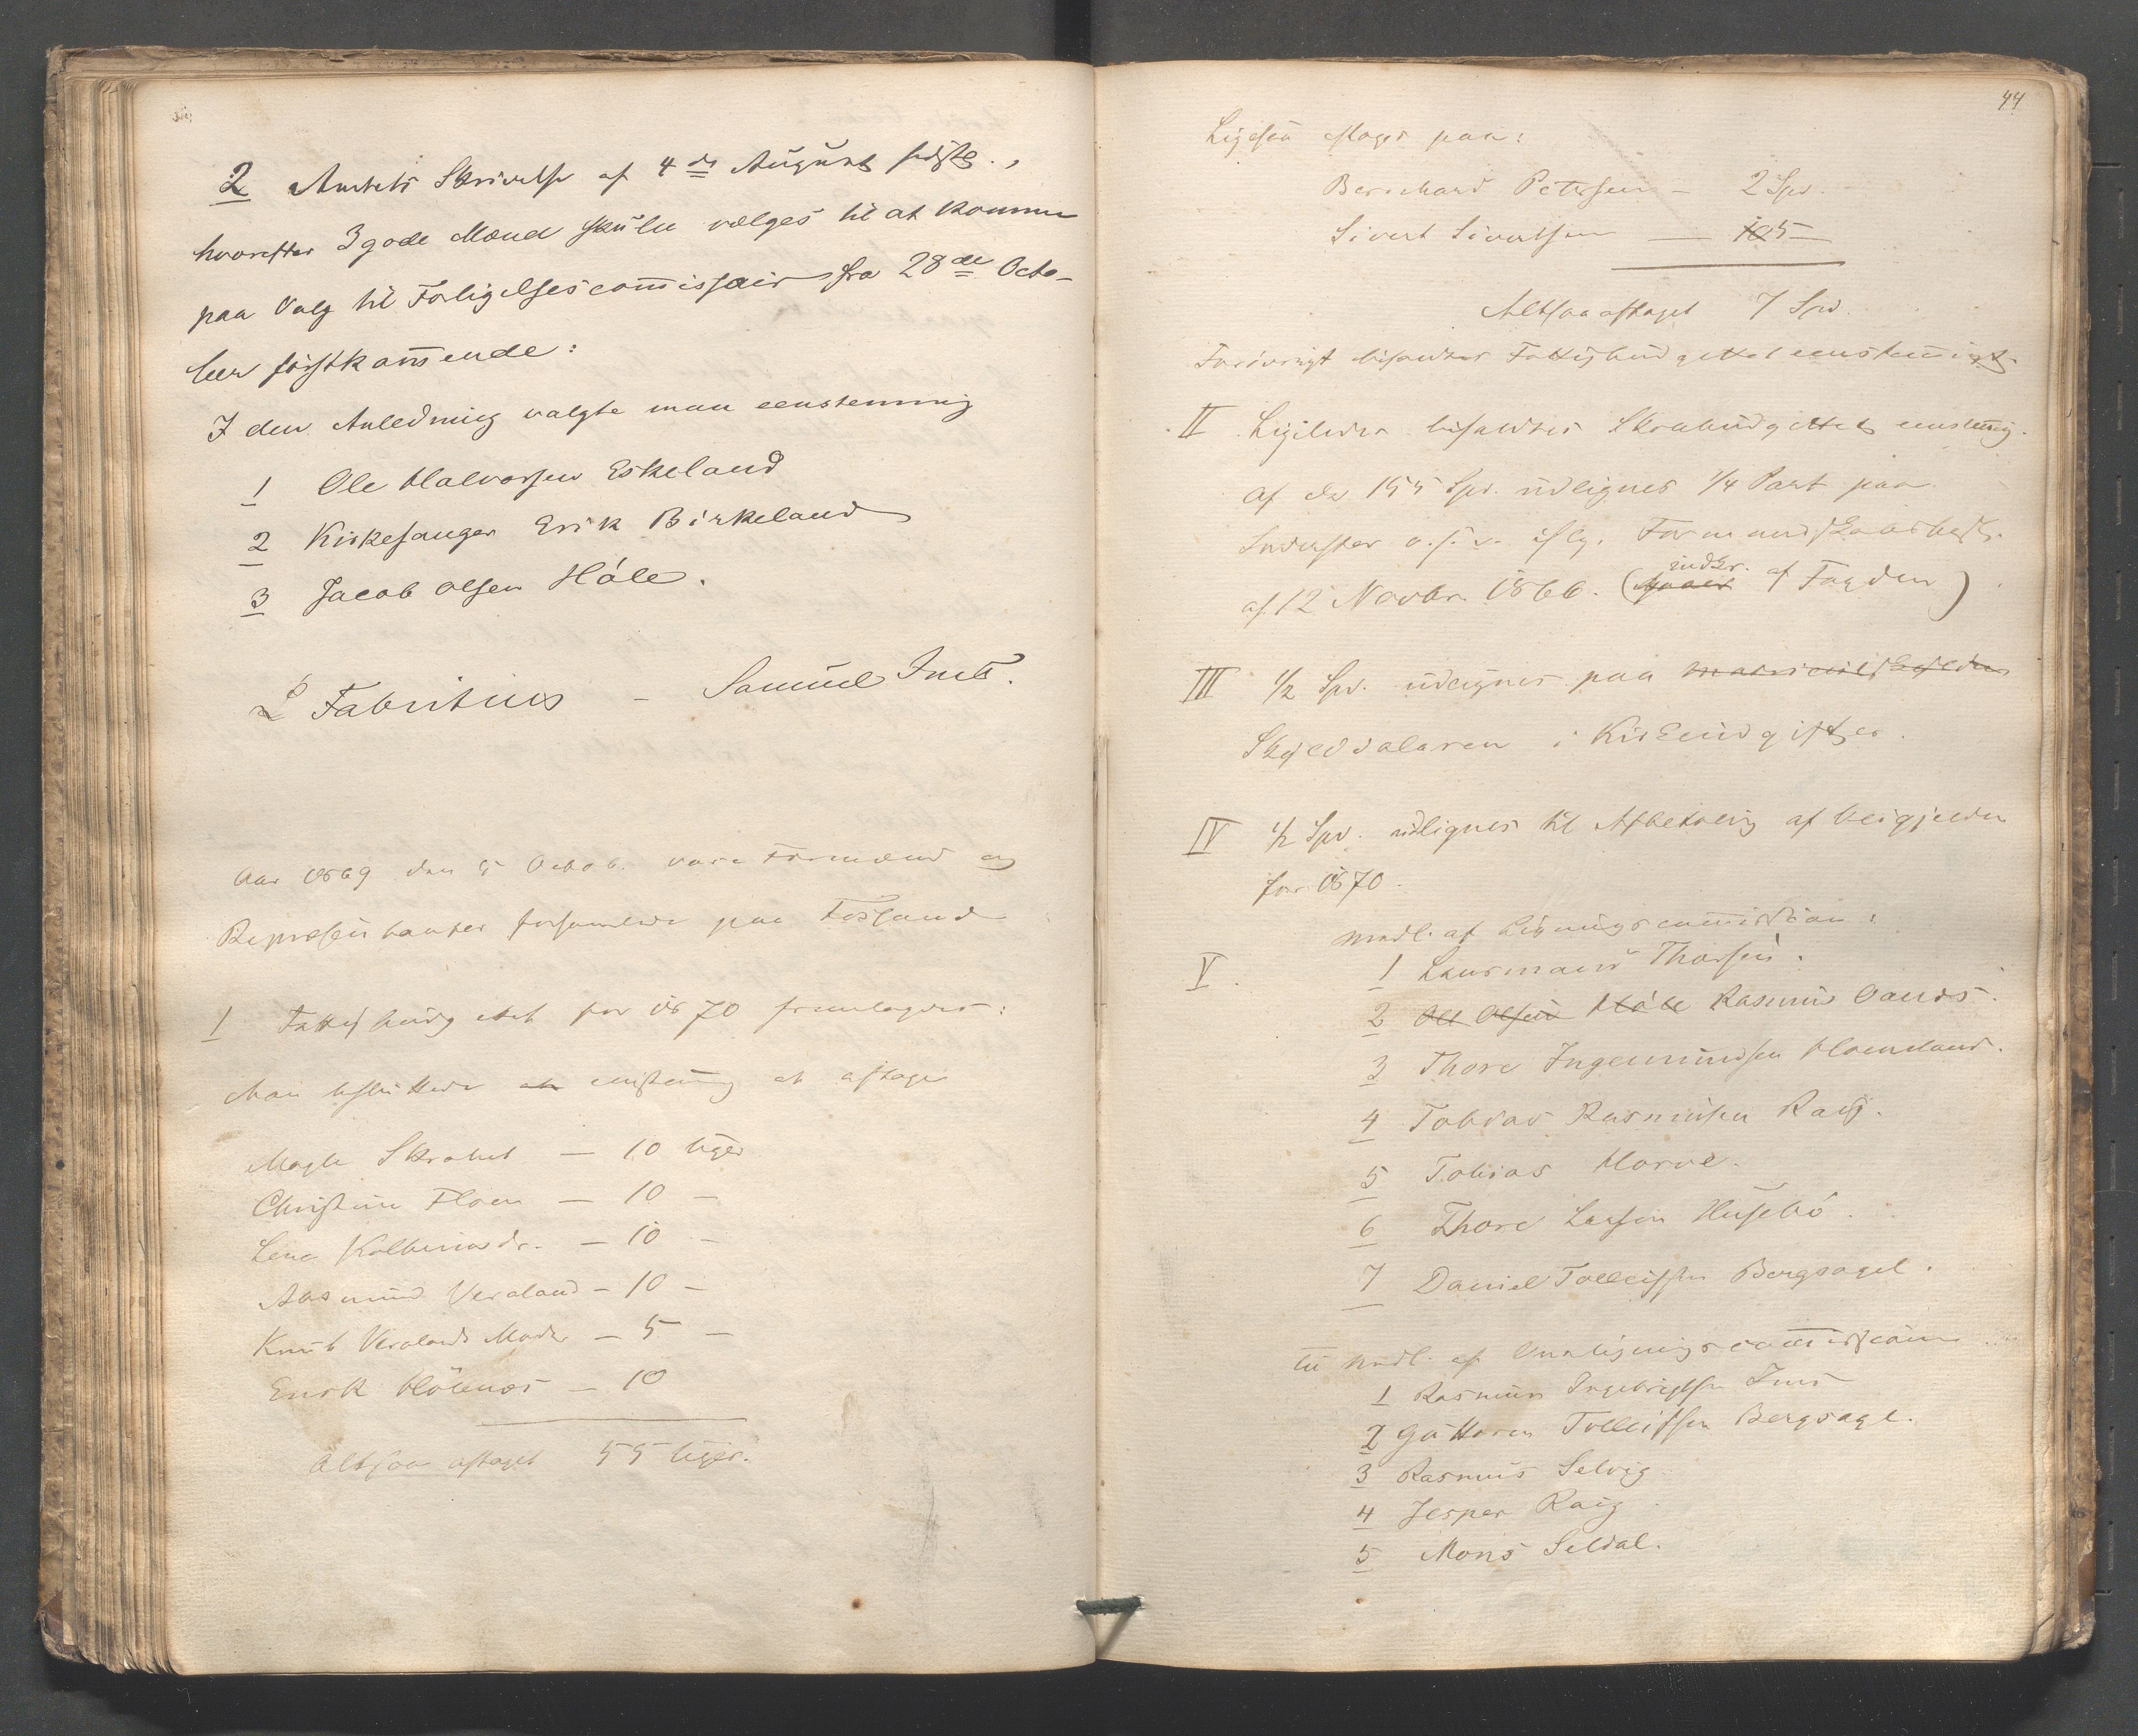 2 Amtets Skrivelse af 4de August sidstl.,
hvorefter 3 gode Mænd skulle vælges til at komme
paa Valg til Forligelsescommissair fra 28de Octo-
ber förstkommende:
I den Anledning valgte man eenstemmig
1 Ole Halvorsen Eskeland
2 Kirkesanger Erik Birkeland
3 Jacob Olsen Håle.
L Fabritius - Samuel Ims.
Aar 1869 den 5 Octob. vare Formænd og
Repræsentanter forsamlede paa Fossand
1 Fattigbudgettet for 1870 fremlagdes:
Man besluttede at eenstemmig at aftage
Magle Skrabet — 10 Uger
Christine Floen — 10 —
Lene Kolbeinsdr. — 10 —
Aasmund Veraland — 10 —
Knut Veralands Moder — 5 —
Enok Hölenæs — 10
Altsaa aftaget 55 Uger.
44
Ligesaa aftages paa:
Bernhard Petersen — 2 Spd.
Sivert Sivertsen — 10 5 —
Altsaa aftaget 7 Spd.
Forövrigt besluttes Fattigbudgettet eenstemmigt.
II Ligeledes Skolebudgettet eenstemmig.
Af de 155 Spd. udlignes 1/4 Part paa
Inderster o.s.v. iflg. Formandskabsbesl.
af 12 Novbr. 1866. ( af Fogden)
III 1/2 Spd. udlignes paa Matriculskylden
Skylddaleren i Kirkeudgifter.
IV 1/2 Spd. udlignes til Afbetaling af Veigjælden
for 1870.
V. Medl. af Ligningscommission:
1 Lensmand Thorsen.
2 Ole Olsen Håle Rasmus Oanæs.
3 Thore Ingemundsen Hommeland.
4 Tobias Rasmussen Raug.
5 Tobias Horve.
6 Thore Larsen Husebö.
7 Daniel Tolleifsen Bergsagel.
Til Medl. af Overligningscommission
1 Rasmus Ingebrigtsen Ims
2 Guttorm Tolleifsen Bergsagl.
3 Rasmus Selvig
4 Jesper Raug.
5 Mons Seldal.